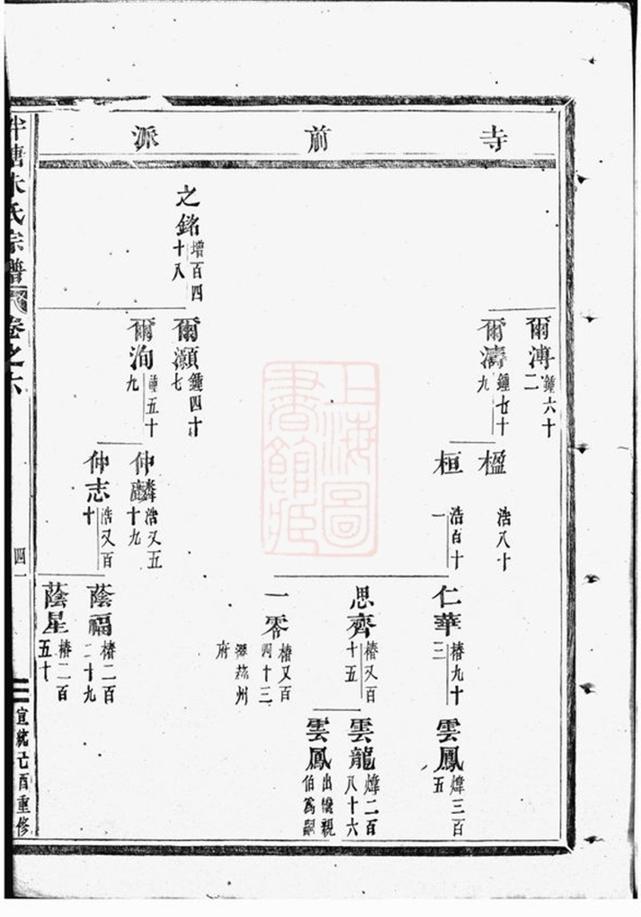 寺前派
爾溥 鍾六十二
爾濤 鍾七十九
楹 浩八十
桓 浩百十一
仁華 椿九十三
雲鳳 煒三百五
思齊 椿又百十五
雲龍 煒二百八十六
雲鳳 出後親伯爲嗣
一零 椿又百四十三
州府
之銘 增百四十八
爾灝 鍾四十七
爾洵 鍾五十九
仲麟 浩又五十九
仲志 浩又百十
蔭福 椿二百二十九
蔭星 椿二百五十
半塘朱氏宗譜 卷之六
四一
宣統己酉重修
上海圖書館藏